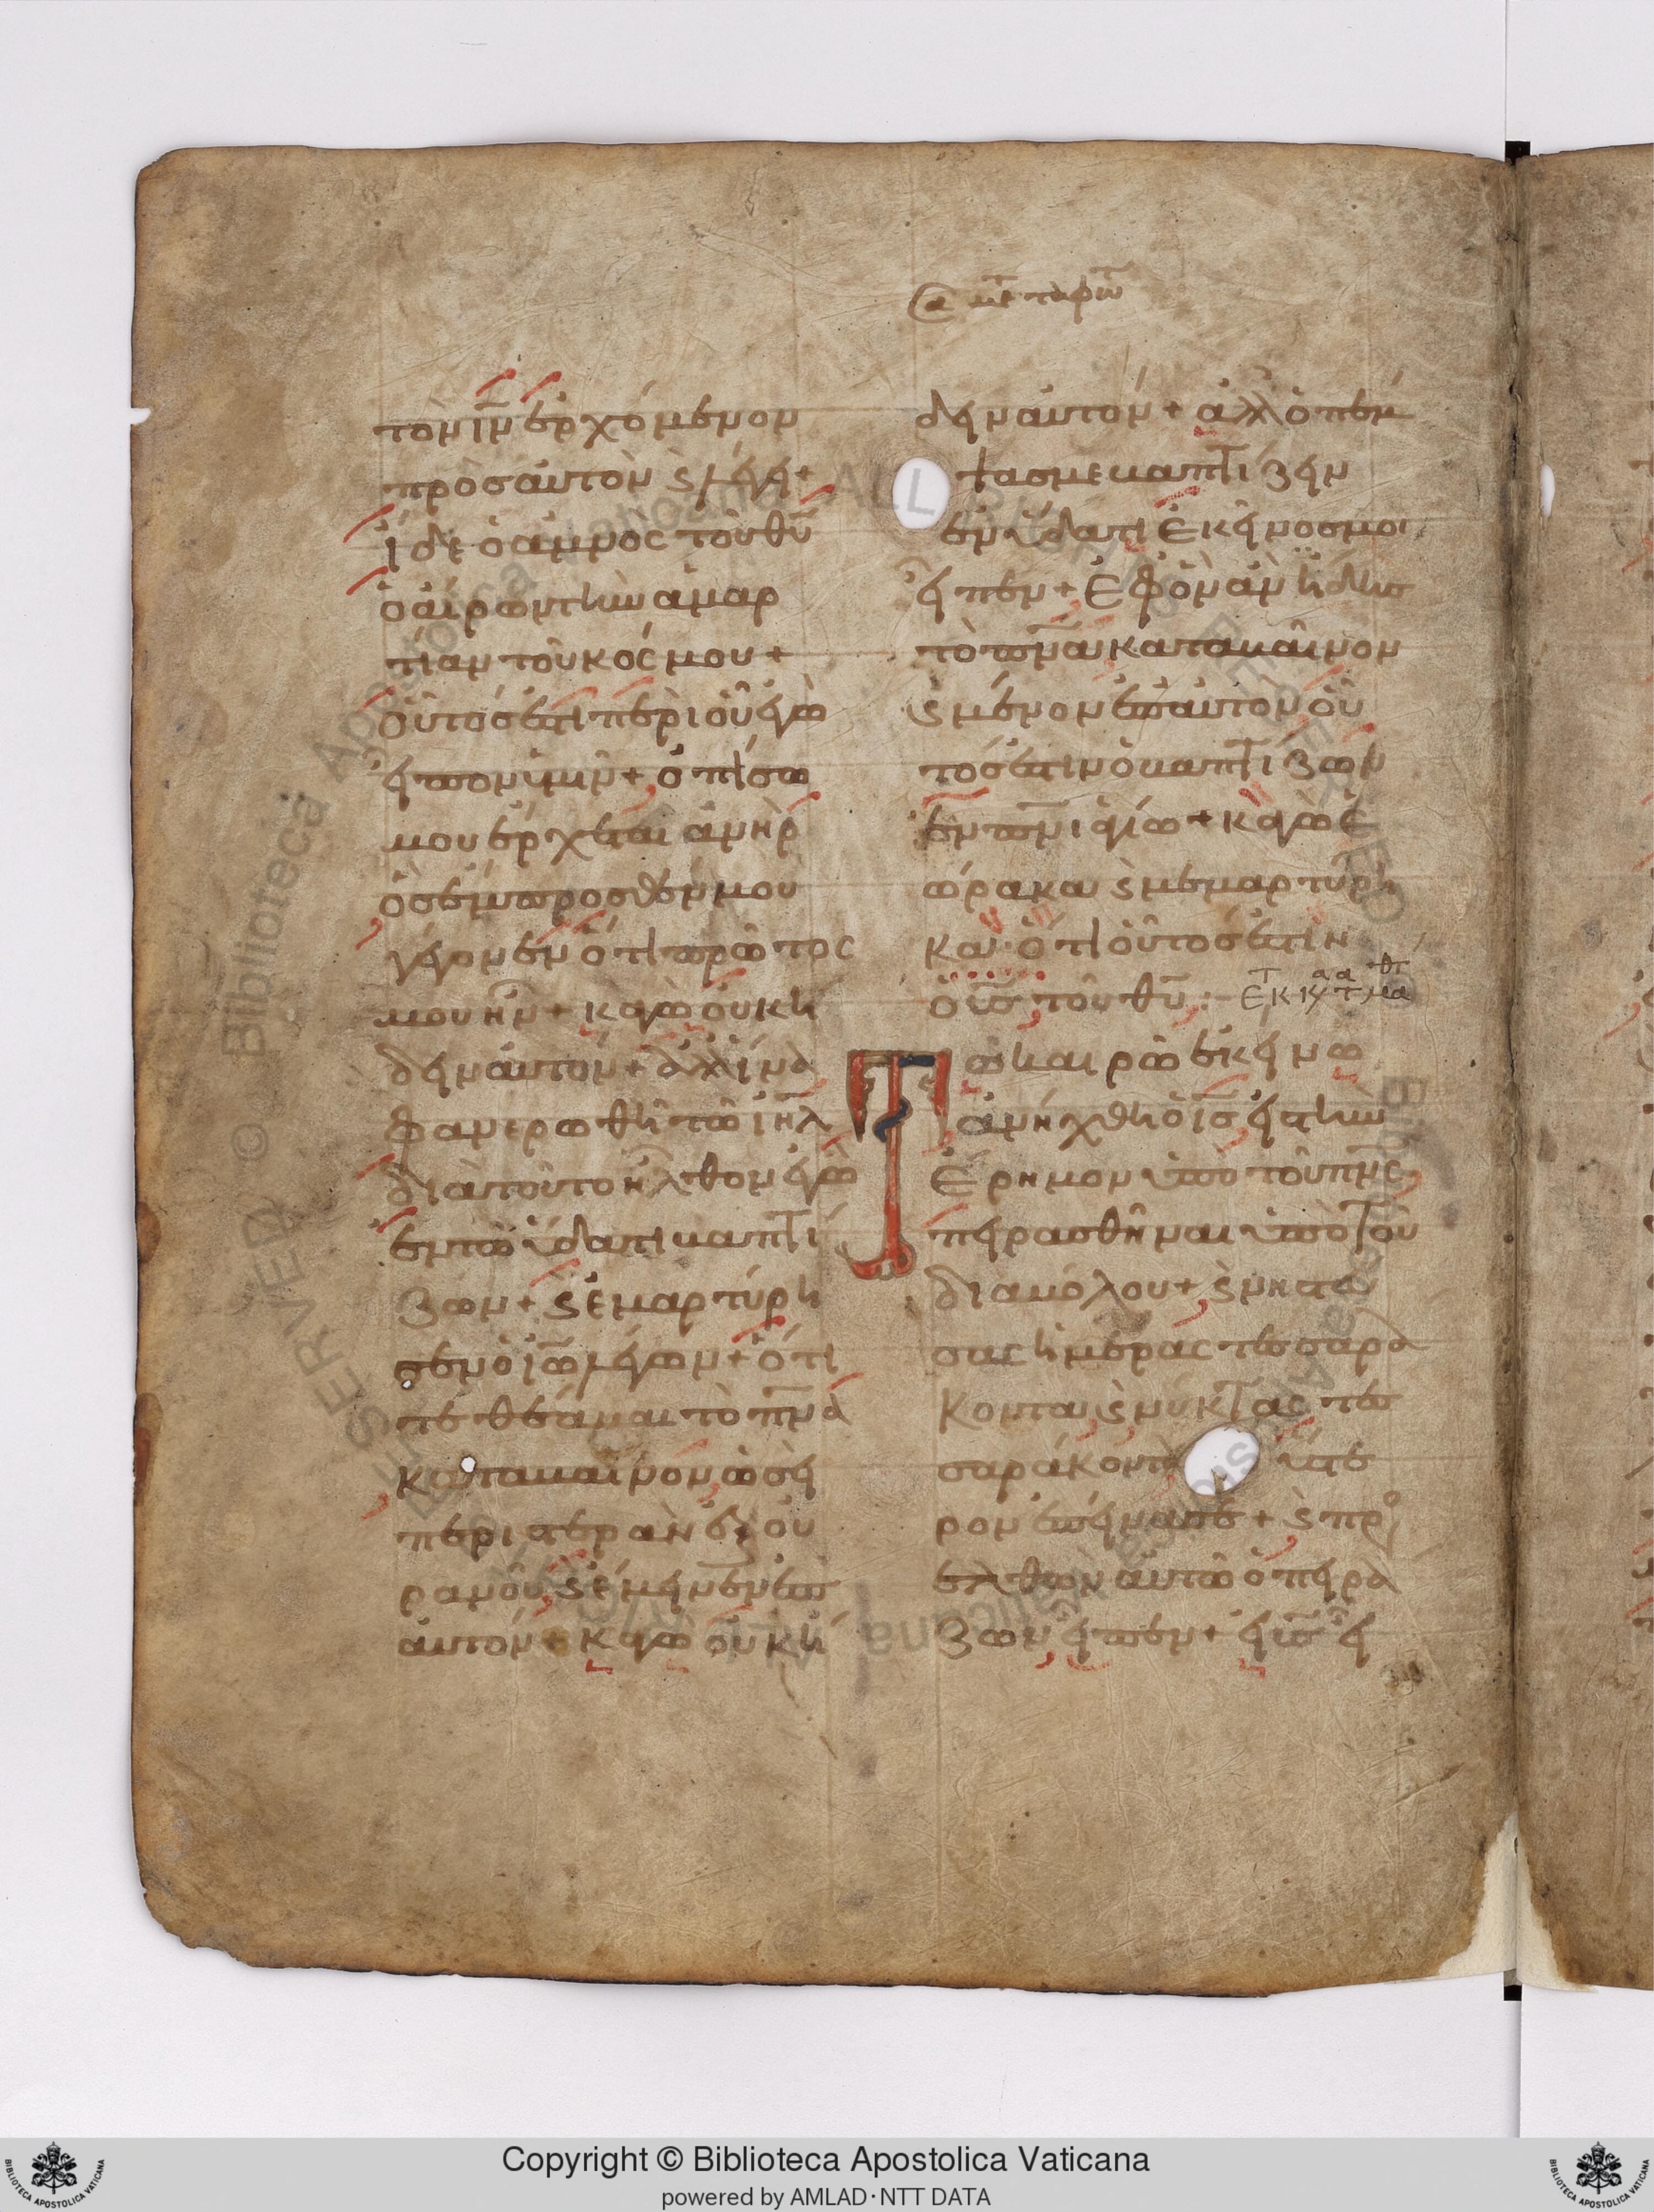 τὸν ἰν̅ ἐρχόμενον
πρὸσ ἀυτὸν ϗ λέγει +
ἴδε ὁ ἀμνὸς τοῦ θυ̅
ὁ αἴρων τὴν ἁμαρ
τίαν τοῦ κόσμου +
οὗτόσ ἐστι περὶ οὗ ἐγὼ
εἶπον ὑμῖν + ὀπίσω
μου ἔρχεται ἀνὴρ
ὃσ ἔμπροσθέν μου
γέγονεν ὅτι πρῶτος
μου ἦν + κἀγὼ οὐκ ἤ
δειν ἀυτόν + ἀλλ ἵνα
φανερωθῆ τῶ ιηλ
διὰ τοῦτο ἦλθον ἐγὼ
ἐν τῶ ὕδατι βαπτί
ζων + ϗ ἐμαρτύρη
σεν ὁ ιω̅ λέγων + ὅτι
τεθέαμαι τὸ πν̅α
καταβαῖνον ὡσεὶ
περιστερὰν ἐξ οὐ
ρανοῦ ϗ ἔμεινεν ἐπ
ἀυτόν + κἀγὼ οὐκ ἤ
δειν ἀυτόν + ἀλλ ὁ πέμ
ψασ με βαπτίζειν
ἐν ὕδατι ἐκεῖνοσ μοι
εἶπεν + ἐφ ὃν ἂν ἴδησ
τὸ πν̅α καταβαῖνον
ϗ μένον ἐπ ἀυτον οὗ
τόσ ἐστιν ὁ βαπτίζων
ἐν πν̅ι ἁγίω + κἀγὼ ἑ
ώρακα ϗ μεμαρτύρη
κα· ὅτι οὗτοσ ἐστιν
ὁ υἱσ̅ τοῦ θυ̅ :-
Τῶ καιρῶ ἐκείνω
ἀνήχθη ὁ ἰσ̅ εἰσ τὴν
ἔρημον ὑπὸ τοῦ πν̅ς
πειρασθῆναι ὑπὸ τοῦ
διαβόλου + ϗ νηστεύ
σας ἡμέρας τεσσαρά
κοντα ϗ νύκτας τεσ
σαράκοντα ὕστε
ρον ἐπείνασε + ϗ προ
ελθὼν ἀυτῶ ὁ πειρά
ζων εἶπεν + εἰ υἱσ̅ εἶ